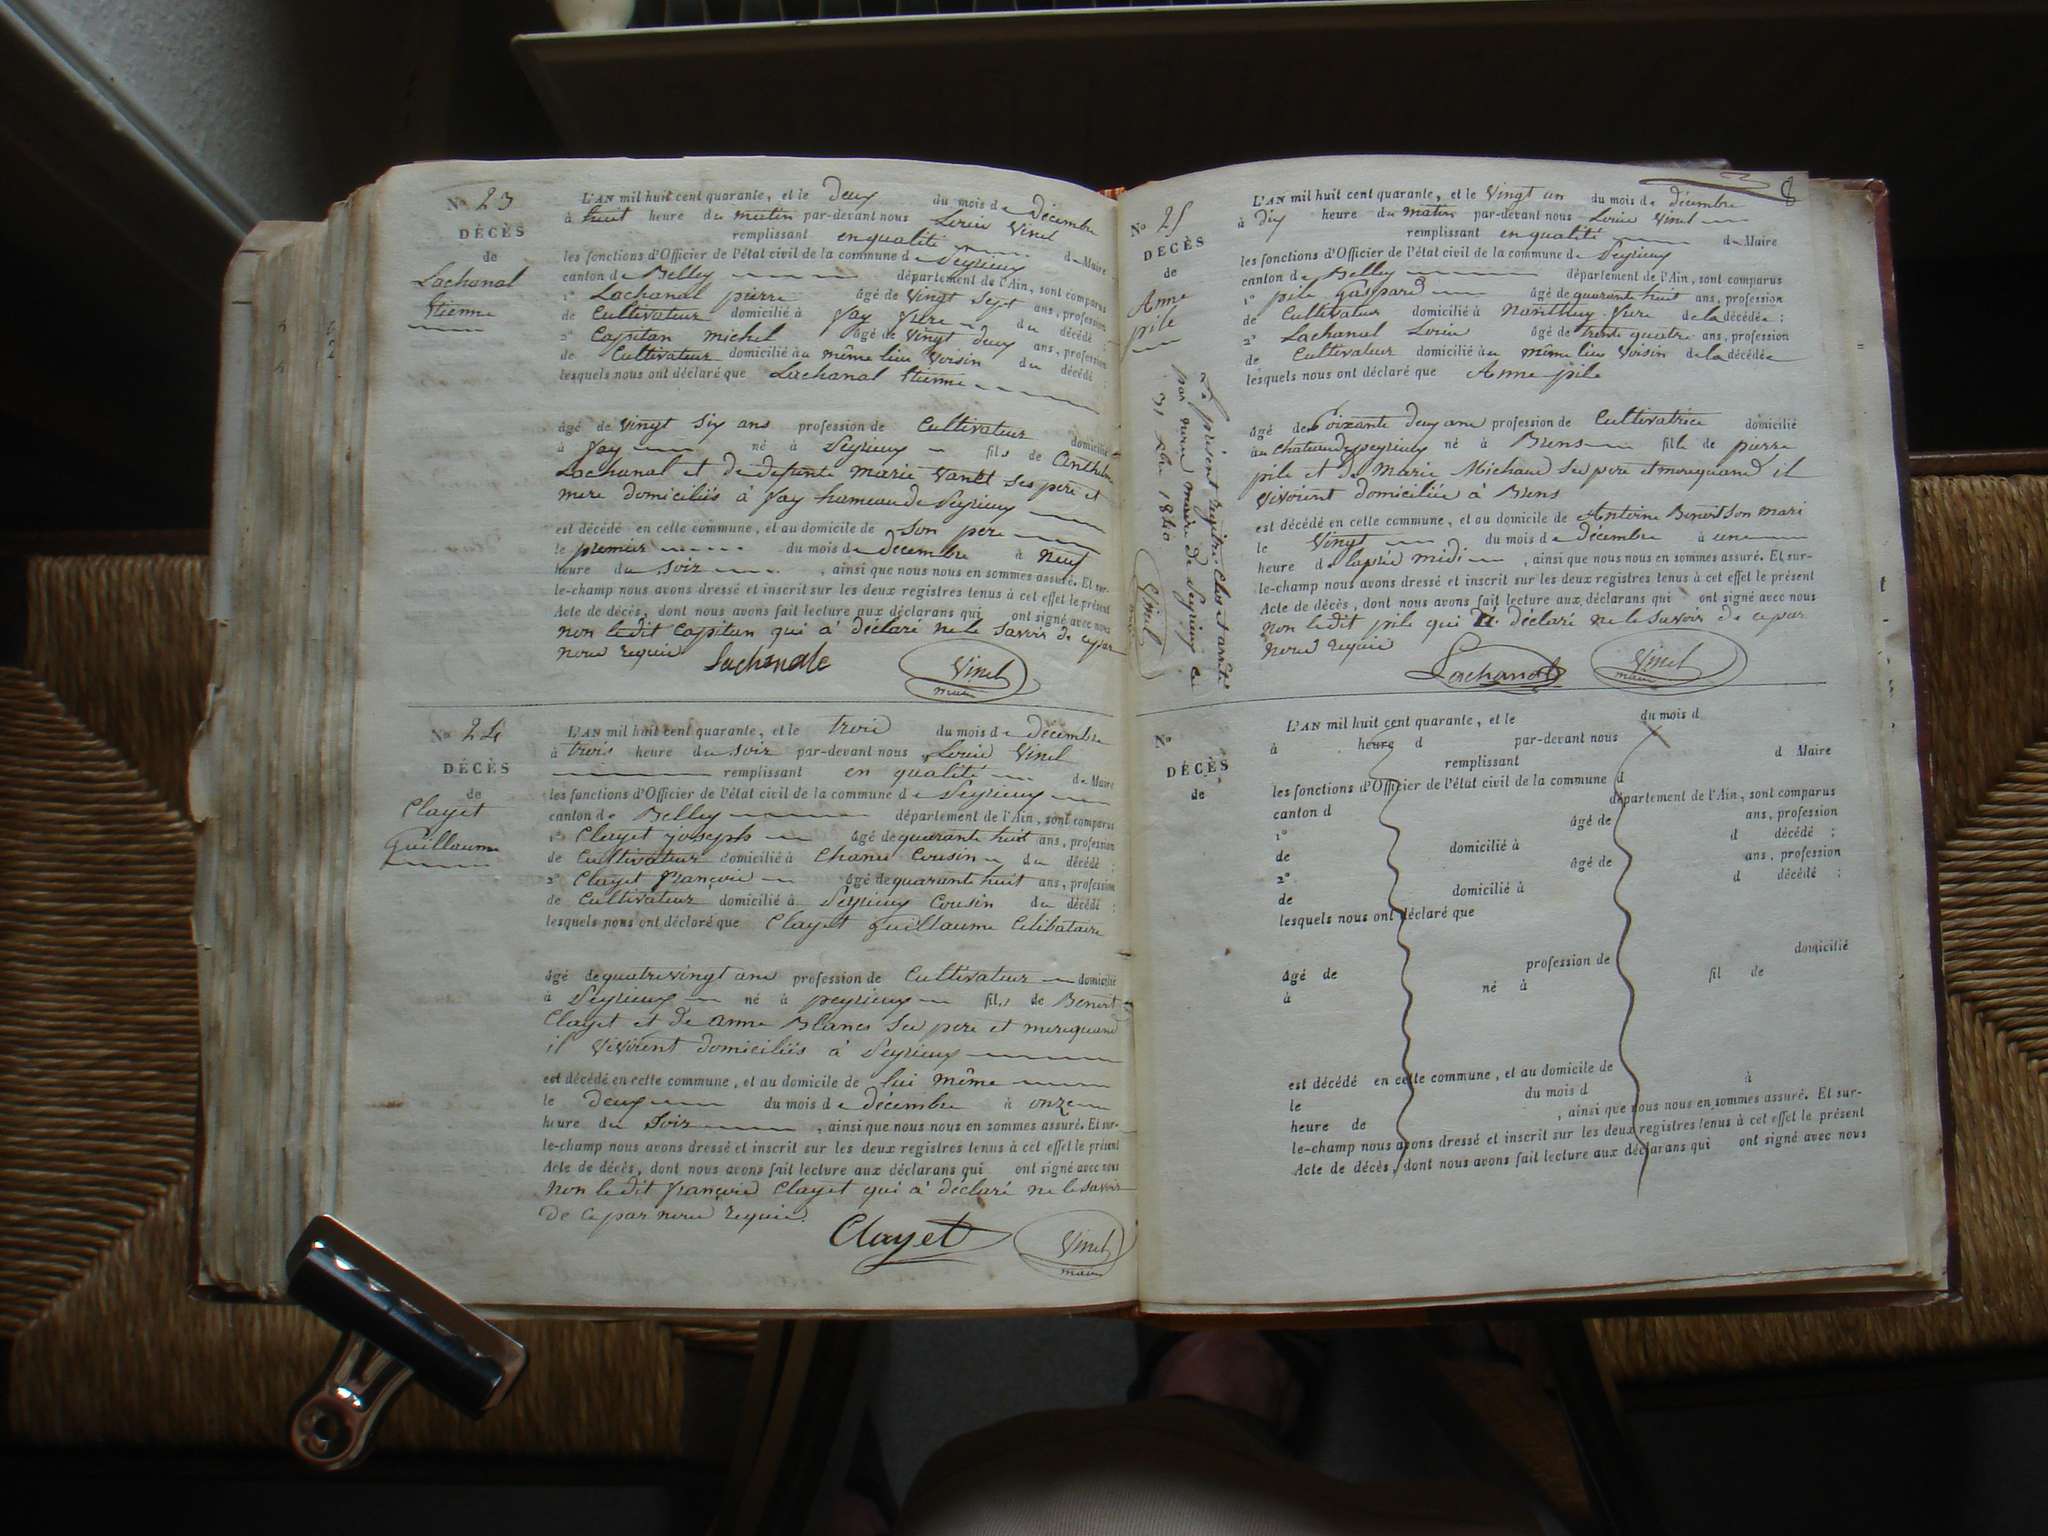 No 23
DÉCÈS
de
Lachanal
Etienne
L'AN mil huit cent quarante, et le Deux du mois de décembre
à huit heure du matin par-devant nous Louis Vinel
remplissant en qualité de Maire
les fonctions d'Officier de l'état civil de la commune de Peyrieux
canton de Belley département de l'Ain, sont comparus
1° Lachanal pierre âgé de vingt sept ans, profession
de Cultivateur domicilié à fay frere du décédé ;
2° Capitan michel âgé de vingt deux ans, profession
de Cultivateur domicilié au même lieu voisin du décédé ;
lesquels nous ont déclaré que Lachanal Etienne
âgé de vingt six ans profession de Cultivateur domicilié
à fay né à Peyrieux fils de Anthelme
Lachanal et de defunte marie ses pere et
mere domiciliés à fay hameau de Peyrieux
est décédé en cette commune, et au domicile de son pere
le premier du mois de décembre à neuf
heure du soir , ainsi que nous nous en sommes assuré. Et sur-
le-champ nous avons dressé et inscrit sur les deux registres tenus à cet effet le présent
Acte de décès, dont nous avons fait lecture aux déclarans qui ont signé avec nous
non le dit Capitan qui à déclaré ne le savoir de ce par
nous requis Lachanale Vinel
maire
No 24
DÉCÈS
de
Clayet
Guillaume
L'AN mil huit cent quarante, et le trois du mois de décembre
à trois heure du soir par-devant nous Louis Vinel
remplissant en qualité de Maire
les fonctions d'Officier de l'état civil de la commune de Peyrieux
canton de Belley département de l'Ain, sont comparus
1° Clayet joseph âgé de quarante huit ans, profession
de Cultivateur domicilié à Chanu Cousin du décédé ;
2° Clayet françois âgé de quarante huit ans, profession
de Cultivateur domicilié à Peyrieux Cousin du décédé ;
lesquels nous ont déclaré que Clayet Guillaume Célibataire
âgé de quatre vingt ans profession de Cultivateur domicilié
à Peyrieux né à peyrieux fils de Benoit
Clayet et de anne Blanc ses pere et mere quand
il vivoient domiciliés à Peyrieux
est décédé en cette commune, et au domicile de lui même
le deux du mois de décembre à onze
heure du soir , ainsi que nous nous en sommes assuré. Et sur-
le-champ nous avons dressé et inscrit sur les deux registres tenus à cet effet le présent
Acte de décès, dont nous avons fait lecture aux déclarans qui ont signé avec nous
non le dit françois Clayet qui à déclaré ne le savoir
de ce par nous requis.
Clayet Vinel
maire
8
No 25
DÉCÈS
de
Anne
pile
Le présent registre Clos et arreté
par nous maire de Peyrieux ce
31 Xbre 1840
Vinel
maire
L'AN mil huit cent quarante, et le Vingt un du mois de décembre
à dix heure du matin par-devant nous Louis Vinel
remplissant en qualité de Maire
les fonctions d'Officier de l'état civil de la commune de Peyrieux
canton de Belley département de l'Ain, sont comparus
1° pile Gaspard âgé de quarante huit ans, profession
de Cultivateur domicilié à Nanthuy frere de la décédée ;
2° Lachanal Louis âgé de trente quatre ans, profession
de Cultivateur domicilié au même lieu voisin de la décédée
lesquels nous ont déclaré que Anne pile
âgé de Soixante deux ans profession de Cultivatrice domicilié
au chateau de peyrieux né à Brens fille de pierre
pile et de Marie Michaud ses pere et mere quand il
vivoient domiciliés à Brens
est décédé en cette commune, et au domicile de Antoine Benoit son mari
le Vingt du mois de décembre à une
heure de laprés midi , ainsi que nous nous en sommes assuré. Et sur-
le-champ nous avons dressé et inscrit sur les deux registres tenus à cet effet le présent
Acte de décès, dont nous avons fait lecture aux déclarans qui ont signé avec nous
non le dit pile qui à déclaré ne le savoir de ce par
nous requis
Lachanal Vinel
maire
No
DÉCÈS
de
L'AN mil huit cent quarante, et le du mois d
à heure d par-devant nous
remplissant d Maire
les fonctions d'Officier de l'état civil de la commune d
canton d département de l'Ain, sont comparus
1° âgé de ans, profession
de domicilié à d décédé ;
2° âgé de ans, profession
de domicilié à d décédé ;
lesquels nous ont déclaré que
âgé de profession de domicilié
à né à fil de
est décédé en cette commune, et au domicile de
le du mois d à
heure de , ainsi que nous nous en sommes assuré. Et sur-
le-champ nous avons dressé et inscrit sur les deux registres tenus à cet effet le présent
Acte de décès, dont nous avons fait lecture aux déclarans qui ont signé avec nous